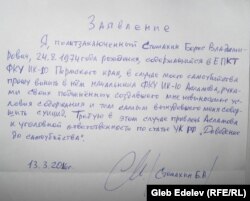 Заявление
Я, политзаключенный Стомахин Борис Владими-
рович, 24.8.1974 года рождения, содержащийся в ЕПКТ
ФКУ ИК-10 Пермского края, в случае моего самоубийства
прошу винить в нём начальника ФКУ ИК-10 Асламова, рука-
ми своих подчинённых создавшего мне невыносимые ус-
ловия содержания и тем самым вынудившего меня совер-
шить суицид. Требую в этом случае привлечь Асламова
к уголовной ответственности по статье УК РФ "Доведение
до самоубийства".
13.3.2016г.
Стомахин Б.В.
Gleb Edelev (RFE/RL)